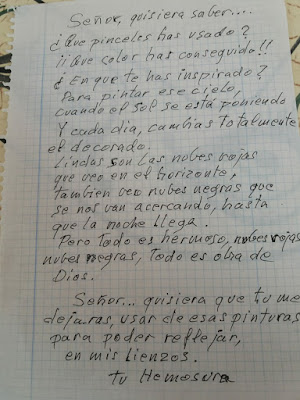 Señor, quisiera saber...
¿Que pinceles has usado?
¡¡Que color has conseguido!!
¿En que te has inspirado?
Para pintar ese cielo,
cuando el sol se está poniendo
Y cada dia, cambias totalmente
el decorado.
Lindas son las nubes rojas
que veo en el horizonte,
tambien veo nubes negras que
se nos van acercando, hasta
que la noche llega.
Pero todo es hermoso, nubes rojas
nubes negras, todo es obra de
Dios.
Señor... quisiera que tu me
dejaras, usar de esas pinturas
para poder reflejar,
en mis lienzos.
Tu Hemosura